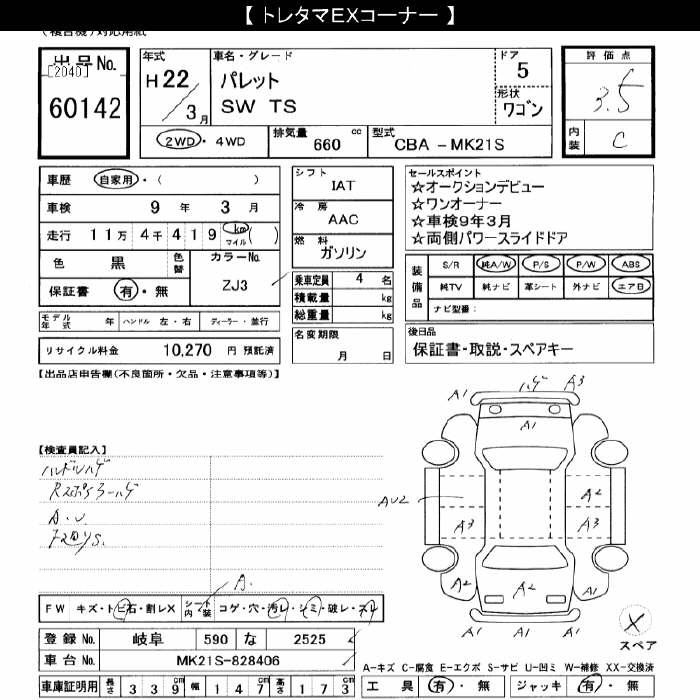 【 トレタマEXコーナー 】
(複合機)対応用紙
出品No.
[2040]
60142
年式
H22
3月
車名・グレード
パレット
SW TS
ドア
5
形状
ワゴン
評価点
3.5
内装
C
2WD・4WD
排気量
660
cc
型式
CBA -MK21S
車歴 自家用・( )
車検 9年 3月
走行 11万 4千 419 km マイル ( )
色 黒 色替 カラーNo.
保証書 有・無 ZJ3
モデル年式 年 ハンドル 左・右 ディーラー・並行
リサイクル料金 10,270 円 預託済
シフト
IAT
冷房
AAC
燃料
ガソリン
乗車定員 4 名
積載量 kg
総重量 kg
名変期限
月 日
セールスポイント
☆オークションデビュー
☆ワンオーナー
☆車検9年3月
☆両側パワースライドドア
装備品
S/R 純A/W P/S P/W ABS
純TV 純ナビ 革シート 外ナビ エアB
ナビ型番:
後日品
保証書・取説・スペアキー
【出品店申告欄(不良箇所・欠品・注意事項等)】
【検査員記入】
ハンドルハゲ
A.U.
A.
A1
ハゲ
A3
A1
A1
A1
AU2
A2
A3
A3
A2
A2
A1
A1
A1
A1
X
スペア
FW キズ・トビ石・割レX
シート内装
コゲ・穴・汚レ・シミ・破レ・スレ
登録No. 岐阜 590 な 2525
車台No. MK21S-828406
車庫証明用 長さ 339cm 幅 147cm 高さ 173cm
A-キズ C-腐食 E-エクボ S-サビ U-凹ミ W-補修 XX-交換済
工具 有・無 ジャッキ 有・無